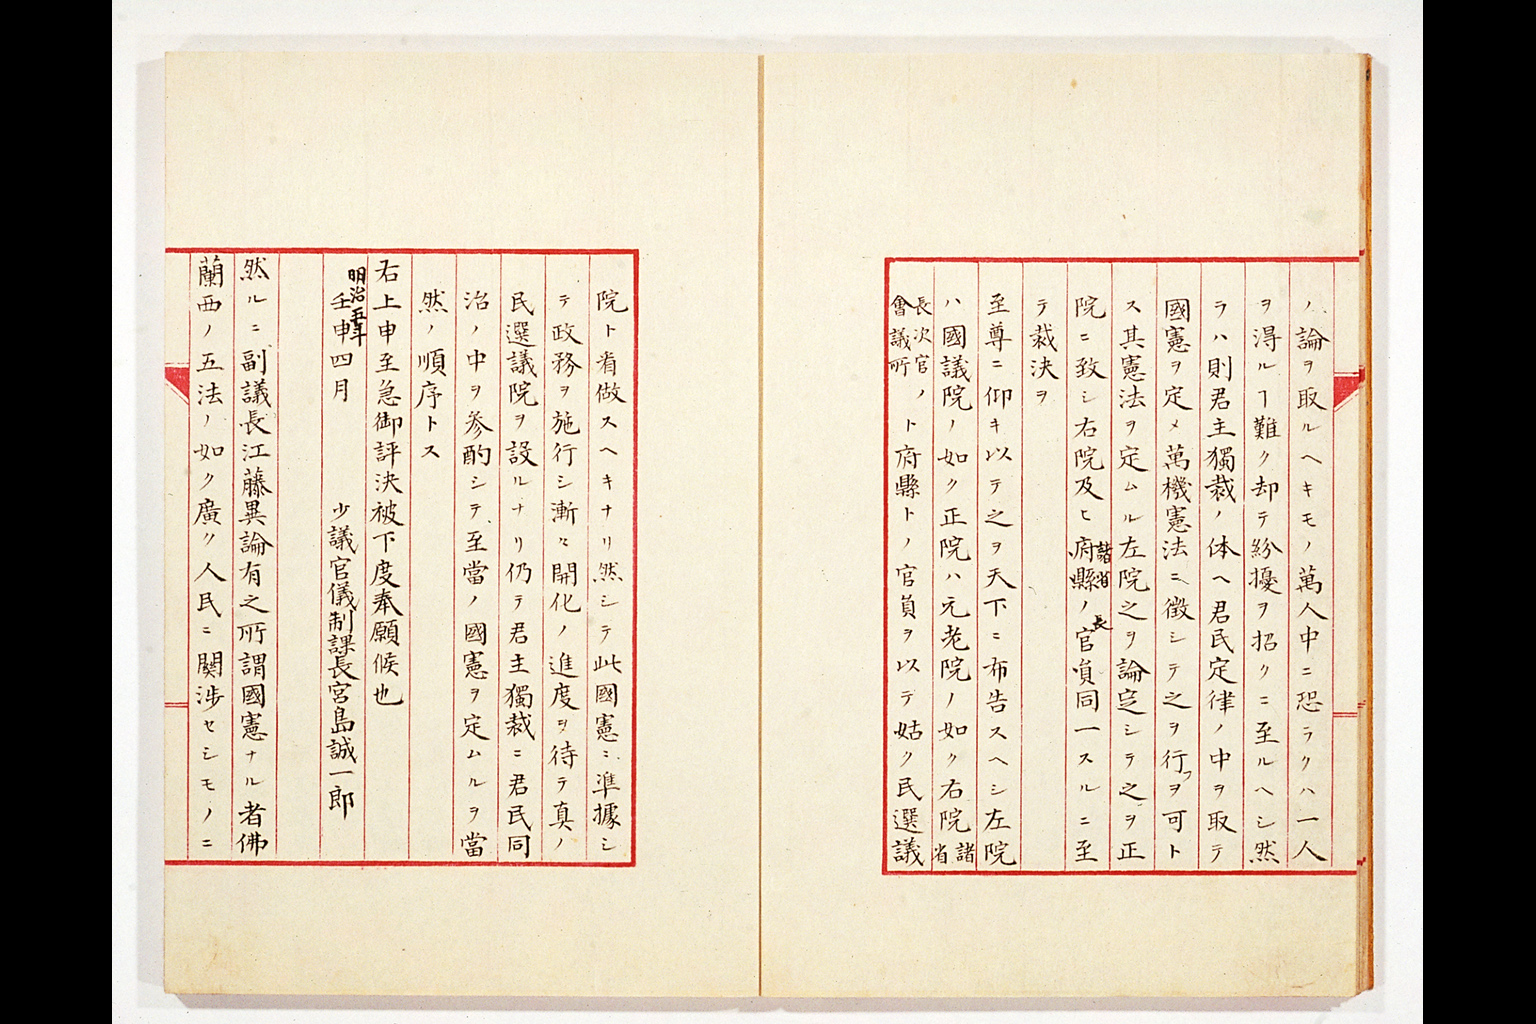 ノ論ヲ取ルヘキモノ萬人中ニ恐ラクハ一人
ヲ得ルヿ難ク却テ紛擾ヲ招クニ至ルヘシ然
ラハ則君主獨裁ノ体ヘ君民定律ノ中ヲ取テ
國憲ヲ定メ萬機憲法ニ徴シテ之ヲ行フヲ可ト
ス其憲法ヲ定ムル左院之ヲ論定シテ之ヲ正
院ニ致シ右院及ヒ府縣ノ官員同一スルニ至
諸省
長
テ裁決ヲ
至尊ニ仰キ以テ之ヲ天下ニ布告スヘシ左院
ハ國議院ノ如ク正院ハ元老院ノ如ク右院諸省
長次官
會議所
ノト府縣トノ官員ヲ以テ姑ク民選議
院ト看做スヘキナリ然シテ此國憲ニ準據シ
テ政務ヲ施行シ漸々開化ノ進度ヲ待テ真ノ
民選議院ヲ設ルナリ仍テ君主獨裁ニ君民同
治ノ中ヲ参酌シテ至當ノ國憲ヲ定ムルヲ當
然ノ順序トス
右上申至急御評決被下度奉願候也
明治五年
壬申四月 少議官儀制課長宮島誠一郎
然ルニ副議長江藤異論有之所謂國憲ナル者佛
蘭西ノ五法ノ如ク廣ク人民ニ関渉セシモノニ